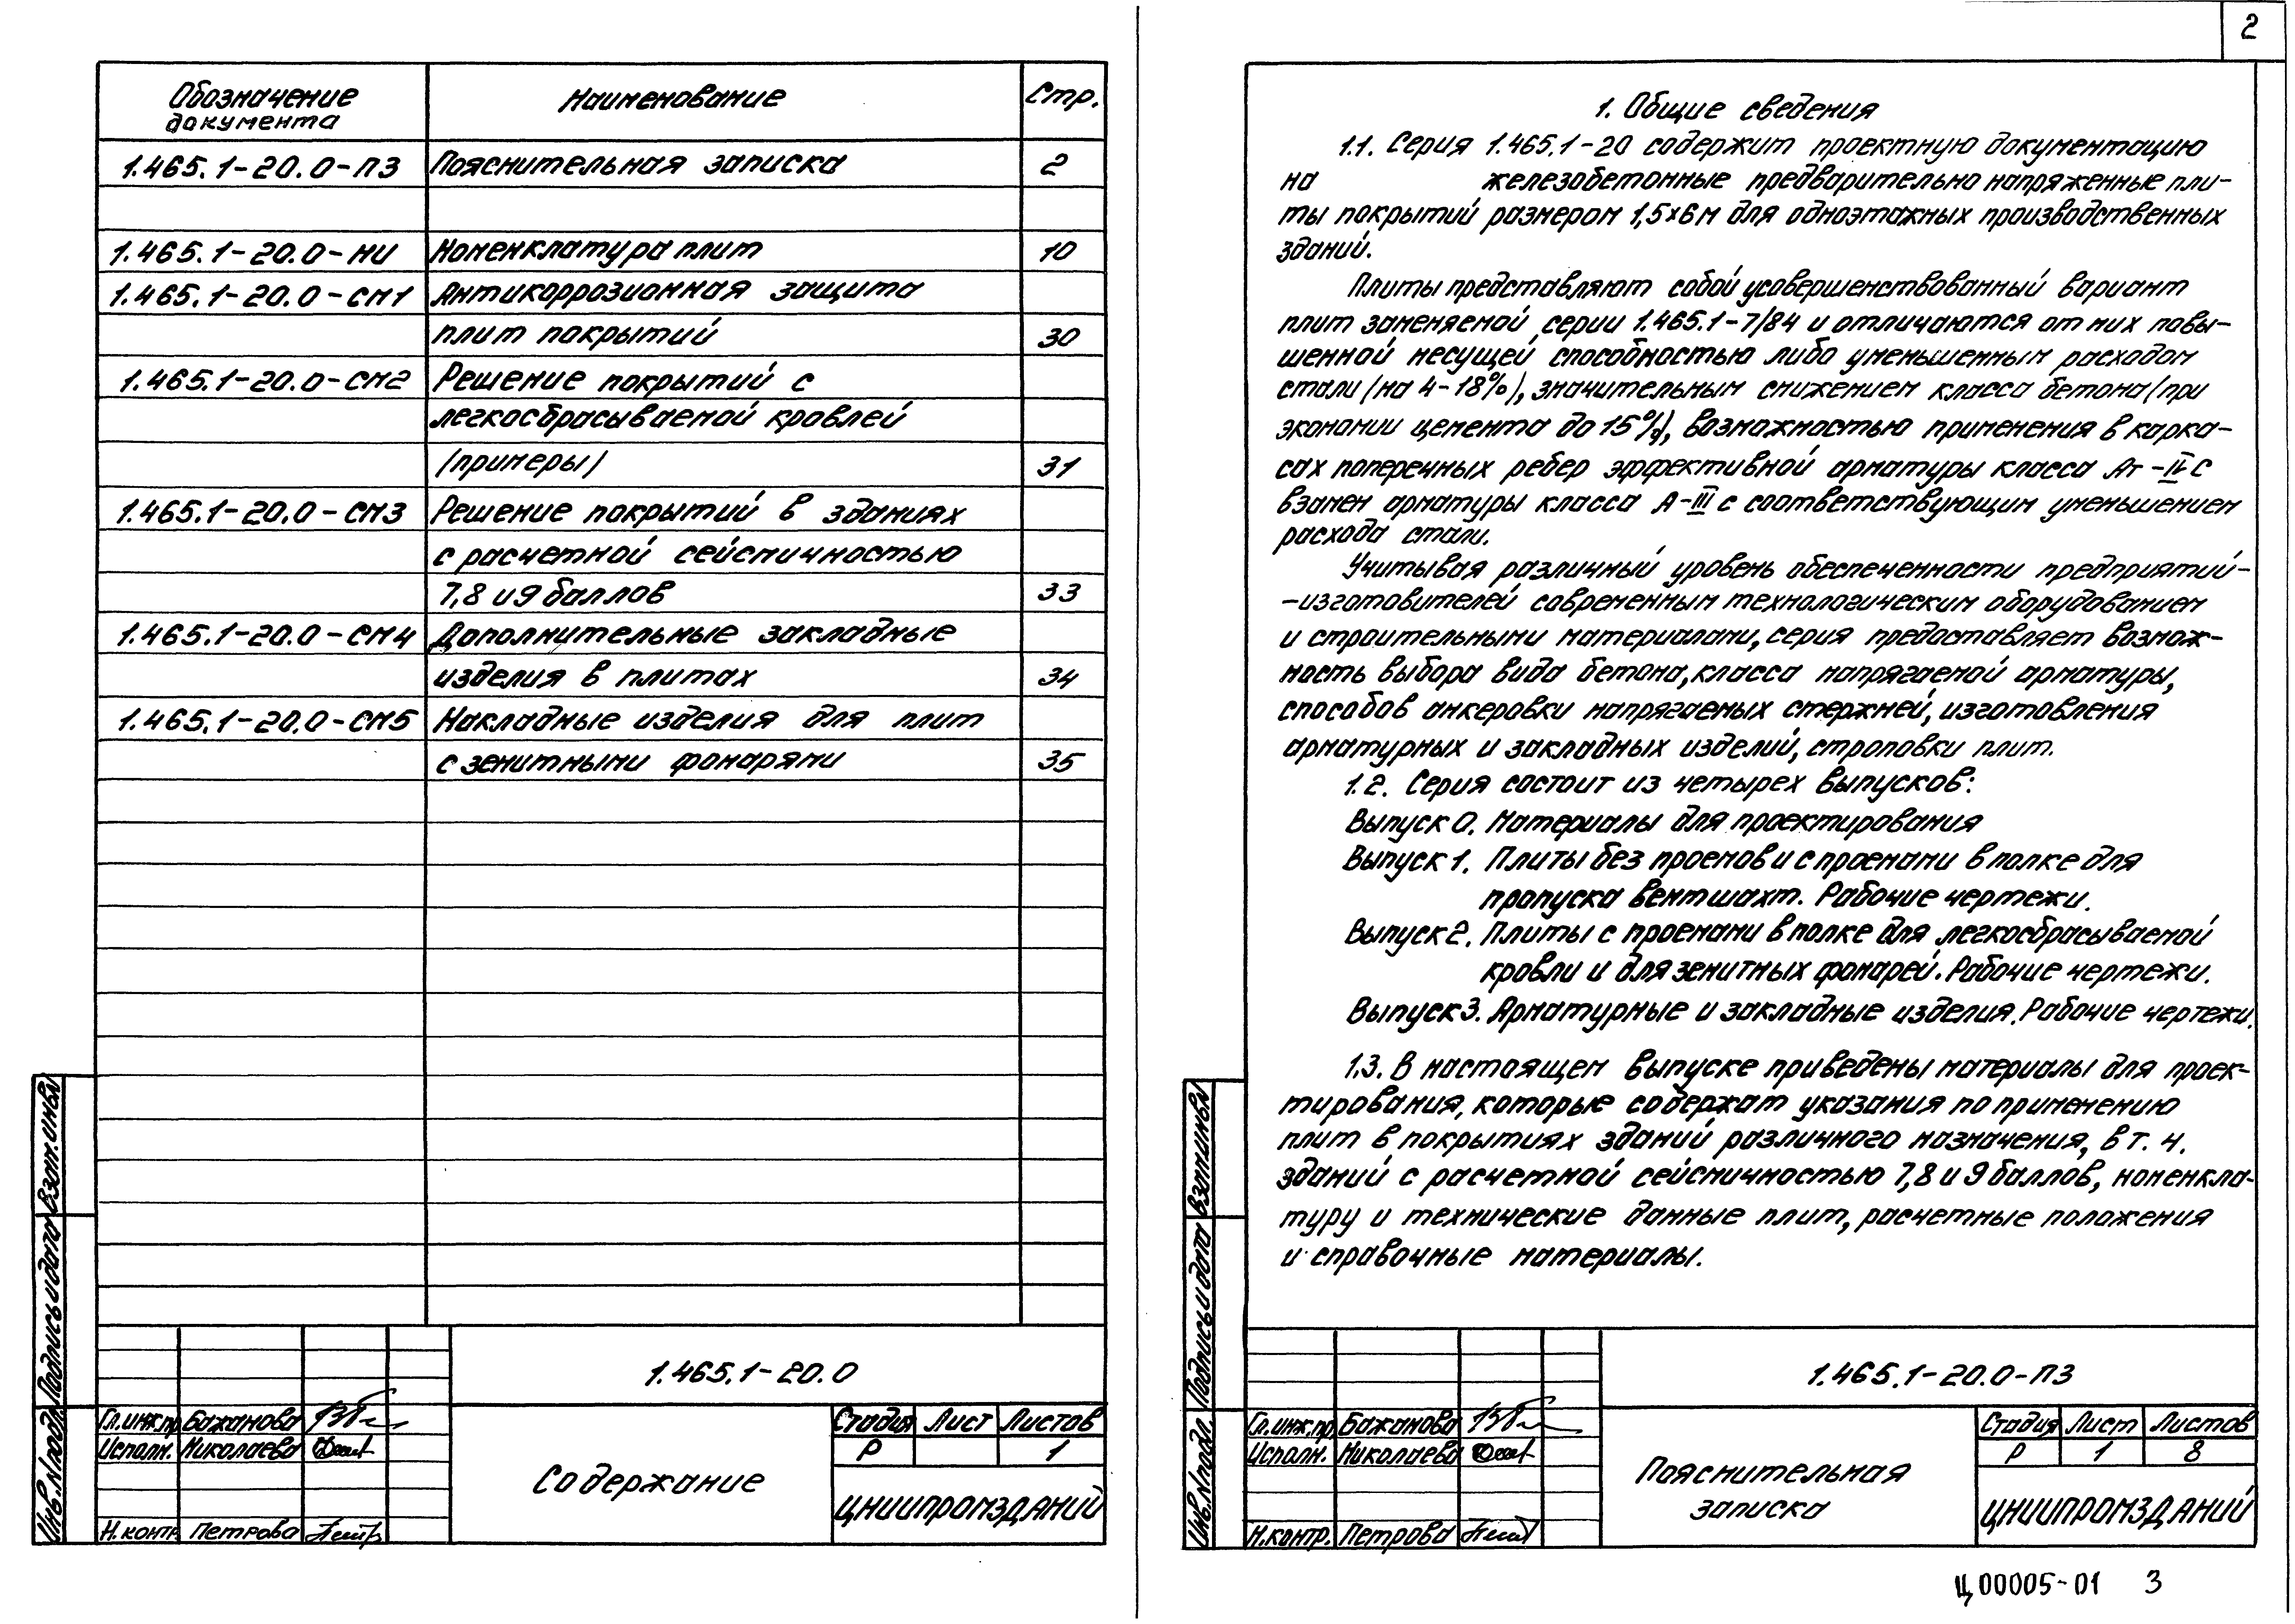 Обозначение документа Наименование Стр.
1.465.1-20.0-ПЗ Пояснительная записка 2
1.465.1-20.0-НИ Номенклатура плит 10
1.465.1-20.0-СМ1 Антикоррозионная защита
плит покрытий 30
1.465.1-20.0-СМ2 Решение покрытий с
легкосбрасываемой кровлей
(примеры) 31
1.465.1-20.0-СМ3 Решение покрытий в зданиях
с расчетной сейсмичностью
7,8 и 9 баллов 33
1.465.1-20.0-СМ4 Дополнительные закладные
изделия в плитах 34
1.465.1-20.0-СМ5 Накладные изделия для плит
с зенитными фонарями 35
Взам. инв.№
Подпись и дата
Инв.№подл.
1.465.1-20.0
Гл.инж.пр. Бажанова
Исполн. Николаева
Н.контр. Петрова
Содержание
Стадия Лист Листов
Р 1
ЦНИИПРОМЗДАНИЙ
2
1. Общие сведения
1.1. Серия 1.465.1-20 содержит проектную документацию
на железобетонные предварительно напряженные пли-
ты покрытий размером 1,5×6м для одноэтажных производственных
зданий.
Плиты представляют собой усовершенствованный вариант
плит заменяемой серии 1.465.1-7/84 и отличаются от них повы-
шенной несущей способностью либо уменьшенным расходом
стали (на 4-18%), значительным снижением класса бетона (при
экономии цемента до 15%), возможностью применения в карка-
сах поперечных ребер эффективной арматуры класса Ат-IVС
взамен арматуры класса А-III с соответствующим уменьшением
расхода стали.
Учитывая различный уровень обеспеченности предприятий-
-изготовителей современным технологическим оборудованием
и строительными материалами, серия предоставляет возмож-
ность выбора вида бетона, класса напрягаемой арматуры,
способов анкеровки напрягаемых стержней, изготовления
арматурных и закладных изделий, строповки плит.
1.2. Серия состоит из четырех выпусков:
Выпуск 0. Материалы для проектирования
Выпуск 1. Плиты без проемов и с проемами в полке для
пропуска вентшахт. Рабочие чертежи.
Выпуск 2. Плиты с проемами в полке для легкосбрасываемой
кровли и для зенитных фонарей. Рабочие чертежи.
Выпуск 3. Арматурные и закладные изделия. Рабочие чертежи.
1.3. В настоящем выпуске приведены материалы для проек-
тирования, которые содержат указания по применению
плит в покрытиях зданий различного назначения, в т. ч.
зданий с расчетной сейсмичностью 7,8 и 9 баллов, номенкла-
туру и технические данные плит, расчетные положения
и справочные материалы.
Взам.инв№
Подпись и дата
Инв.№подл.
1.465.1-20.0-ПЗ
Гл.инж.пр. Бажанова
Исполн. Николаева
Н.контр. Петрова
Пояснительная
записка
Стадия Лист Листов
Р 1 8
ЦНИИПРОМЗДАНИЙ
Ц00005-01 3